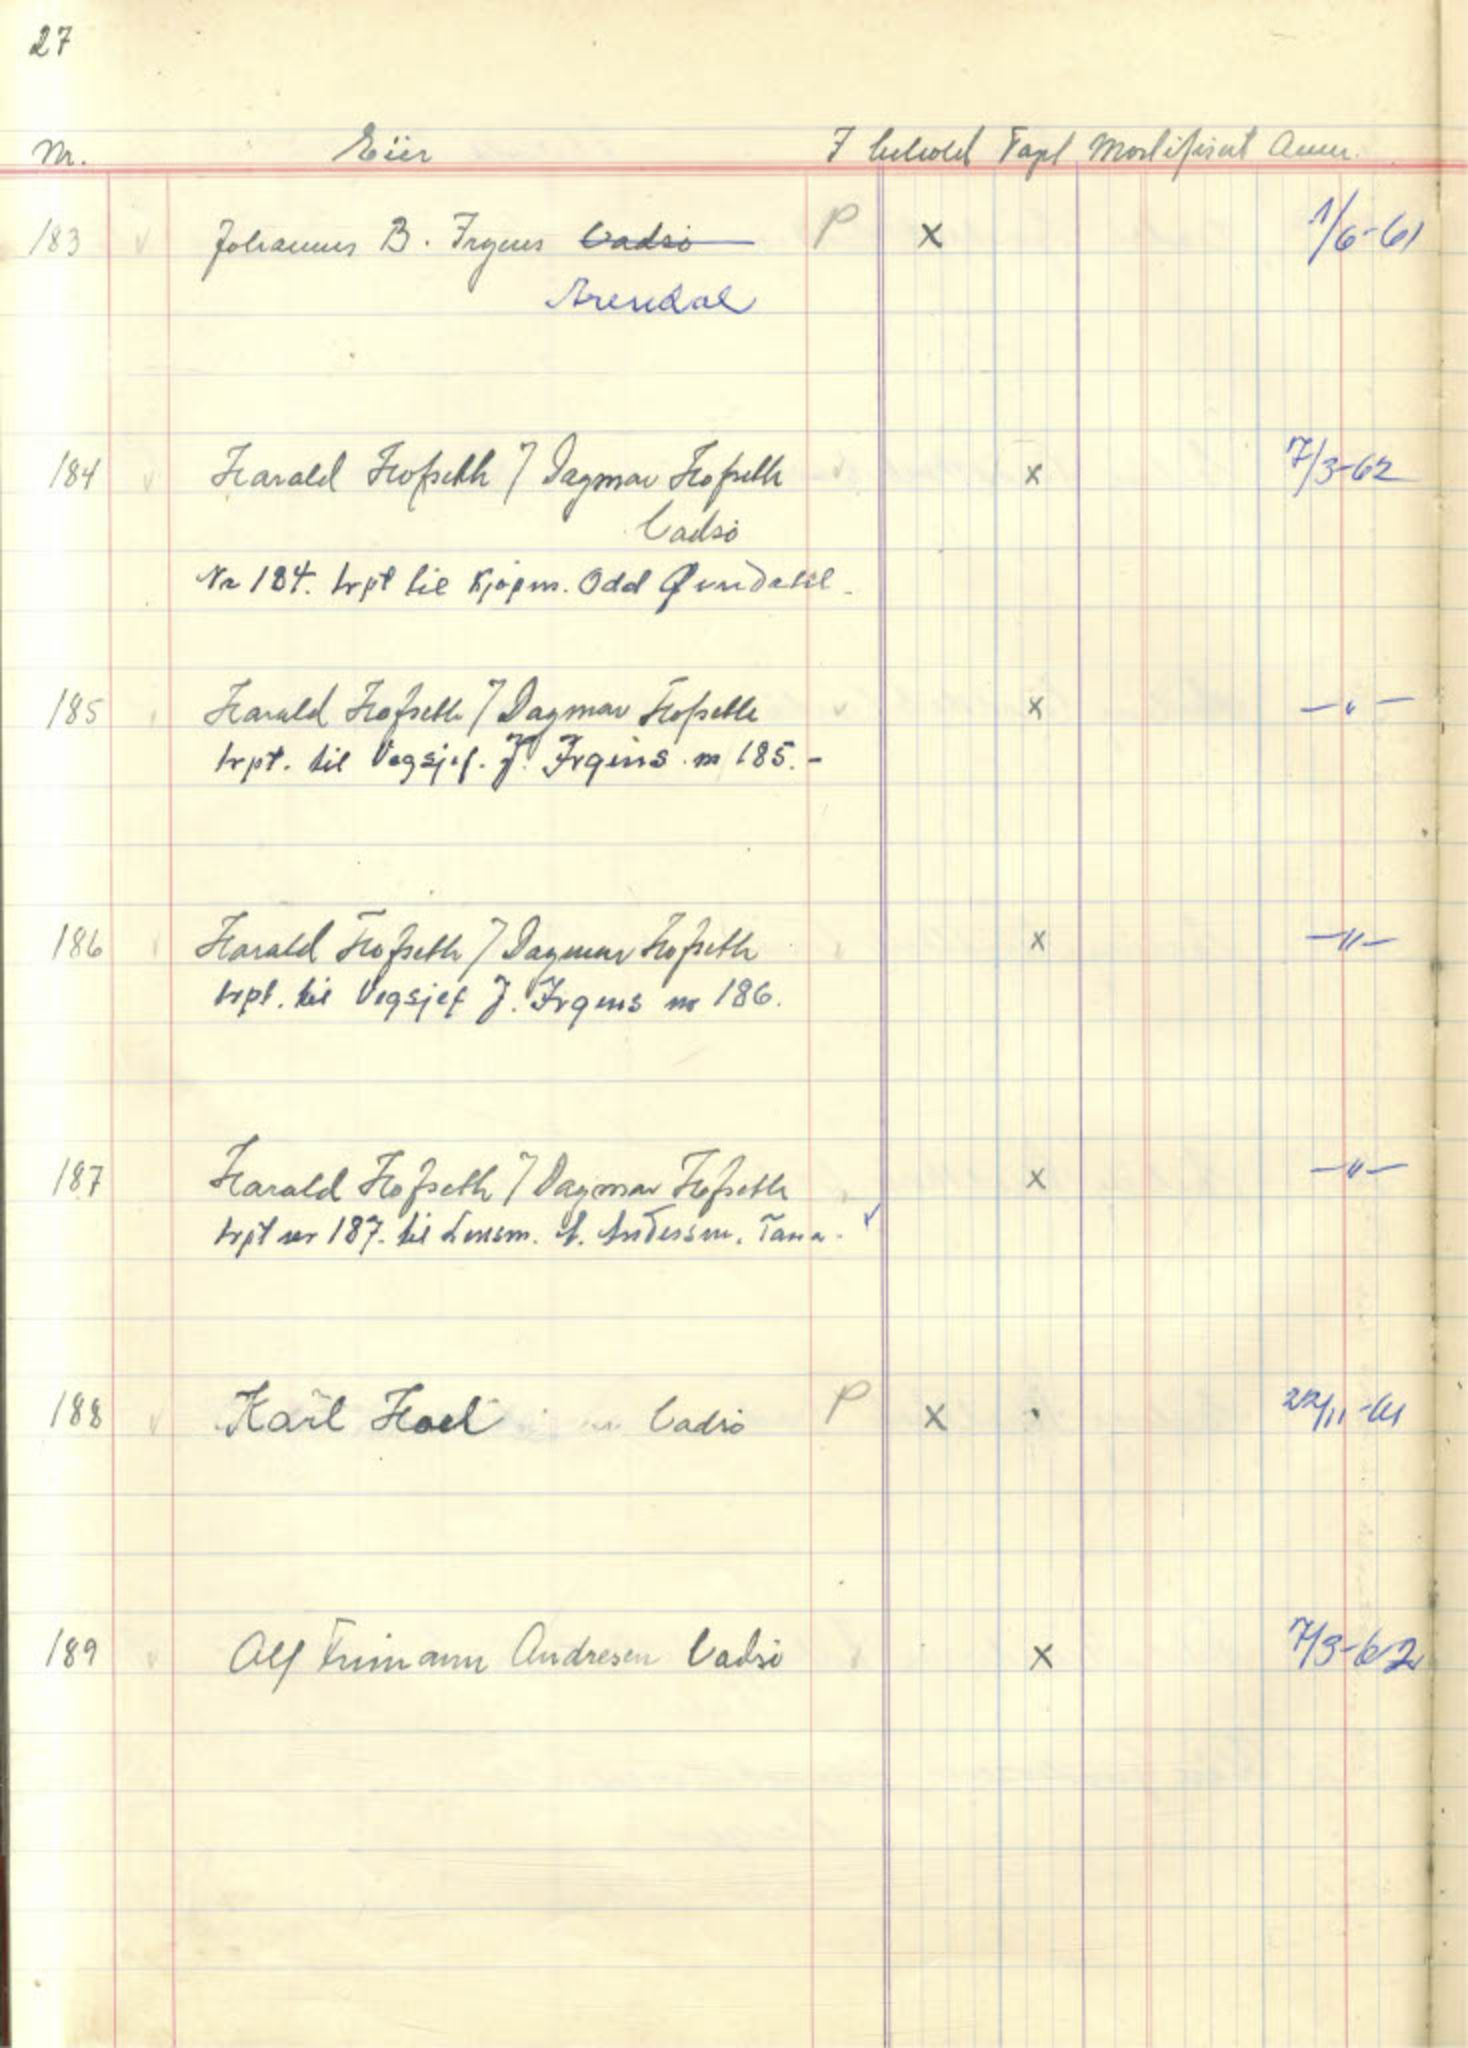 27
Nr. Eier I behold Tapt Mortifisert Anm.
183 Johannes B. Irgens Vadsø P x 1/6-61
Arendal
184 Harald Hofseth / Dagmar Hofseth x 7/3-62
Vadsø
Nr 184. trpt til Kjøpm. Odd
185 Harald Hofseth / Dagmar Hofseth x —"—
trpt. til Vegsjef. J. Irgens nr 185.-
186 Harald Hofseth / Dagmar Hofseth x —"—
trpt. til Vegsjef J. Irgens nr 186.
187 Harald Hofseth / Dagmar Hofseth x —"—
trpt nr 187. til Lensm. A. Andersen. Tana.
188 Karl Hoel Vadsø P x 22/11-61
189 Alf Andresen Vadsø x 7/3-62